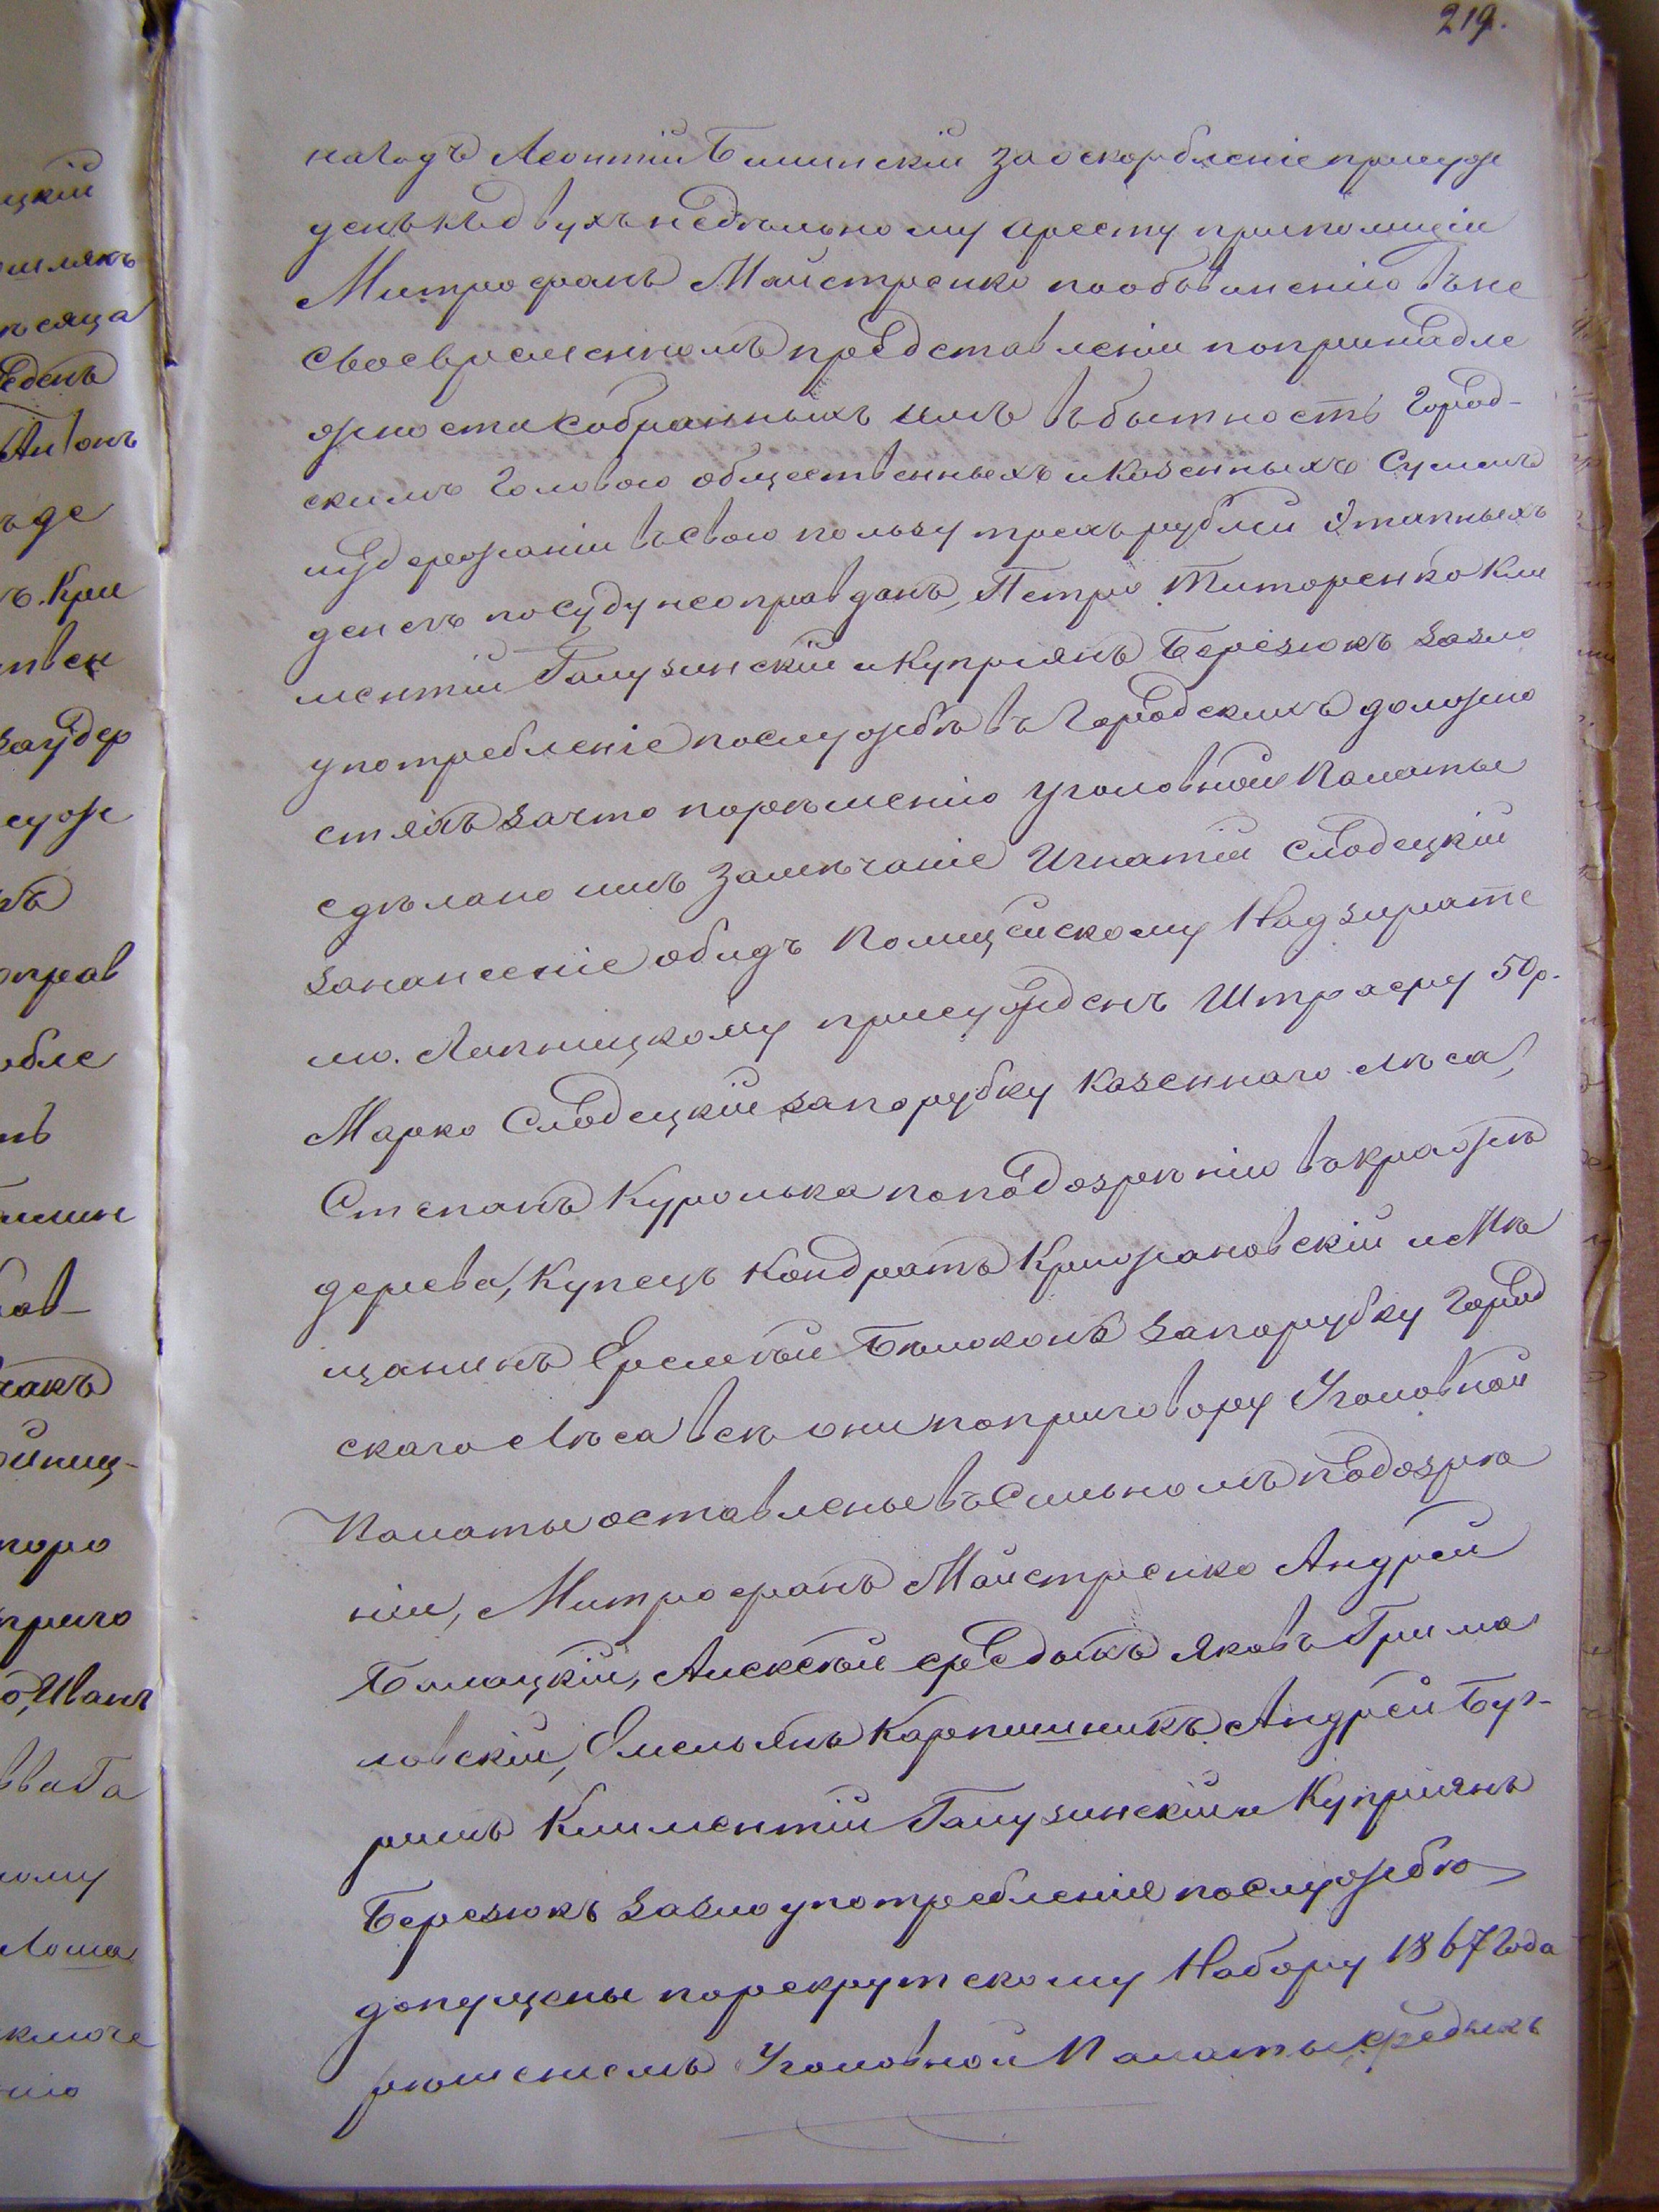 219.
на годъ Леонтій Билинскій за оскорбленіе присуж
денъ къ двухъ недѣльному аресту при полиціи
Митрофанъ Майстренко по обвиненію въ не
своевременномъ представленіи по принадле
жности собранныхъ имъ въ бытность Город-
скимъ Головою общественныхъ и Казенныхъ Суммъ
и удержаніи въ свою пользу трехъ рублей Этапныхъ
денегъ по суду не оправданъ, Петръ Титоренко Кли
ментій Галузинскій и Купріянъ Березюкъ за зло
употребленіе по службѣ въ Городскихъ должно
стяхъ за что по рѣшенію Уголовной Палаты
сдѣлано имъ замѣчаніе Игнатій Слободецкій
за нанесеніе обидъ Полицейскому Надзирате
лю Лапницкому присужденъ Штрафу 50 р.
Марко Слободецкій за порубку Казеннаго лѣса,
Степанъ Куролька по подозрѣнію въ кражѣ
дерева, Купецъ Кондратъ Крижановскій и Мѣ
щанинъ Еремѣй Бѣлоконь за порубку Город
скаго Лѣса всѣ они по приговору Уголовной
Палаты оставлены въ Сильномъ подозрѣ
ніи, Митрофанъ Майстренко Андрей
Билецкій, Алексѣй Федыкъ Яковъ Грима
ловскій, Емельянъ Карпишникъ Андрей Бур-
Климентій Галузинскій и Купріянъ
Березюкъ за злоупотребленія по службѣ
допущены по рекрутскому Набору 1867 Года
рѣшеніемъ Уголовной Палаты Федыкъ
цкій
шлякъ
ѣсяца
Антонъ
ъ де
ъ. Кри
за удер
суж
оправ
обле
нъ
рав-
акъ
пору
приго
Иванъ
ва Га
ному
Лоша
ключе
нію